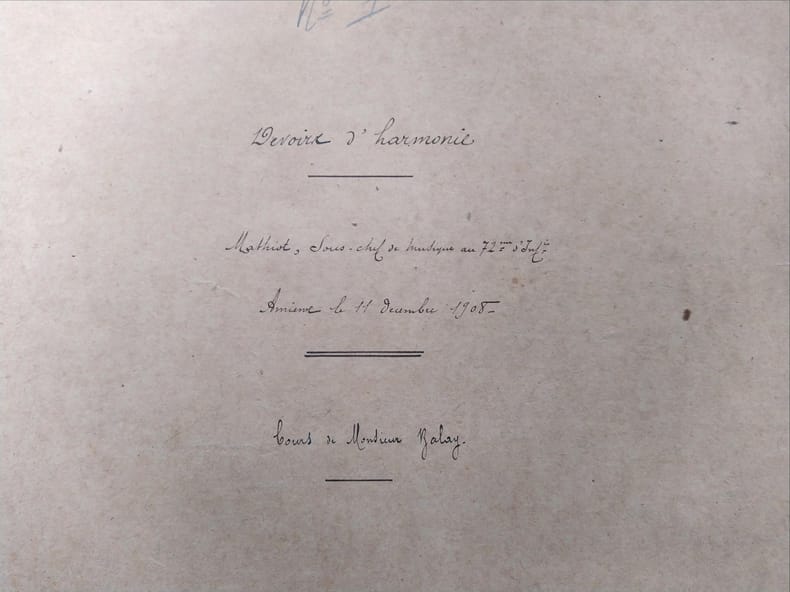 N° 1
Devoirs d'harmonie
Mathiot, Sous-chef de musique au 72ème d'Infie
Amiens le 11 décembre 1908-
Cours de Monsieur Balay.